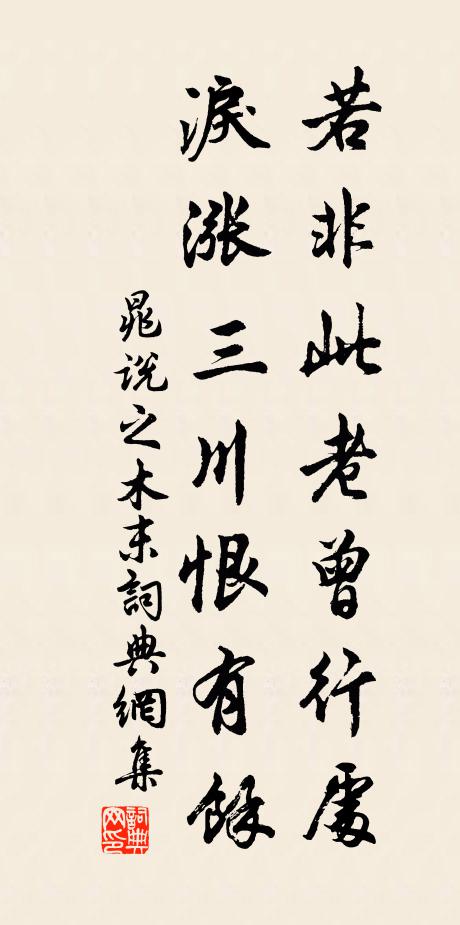 若非此老曾行處
淚漲三川恨有餘
晁說之木末詞典網集
詞典網印